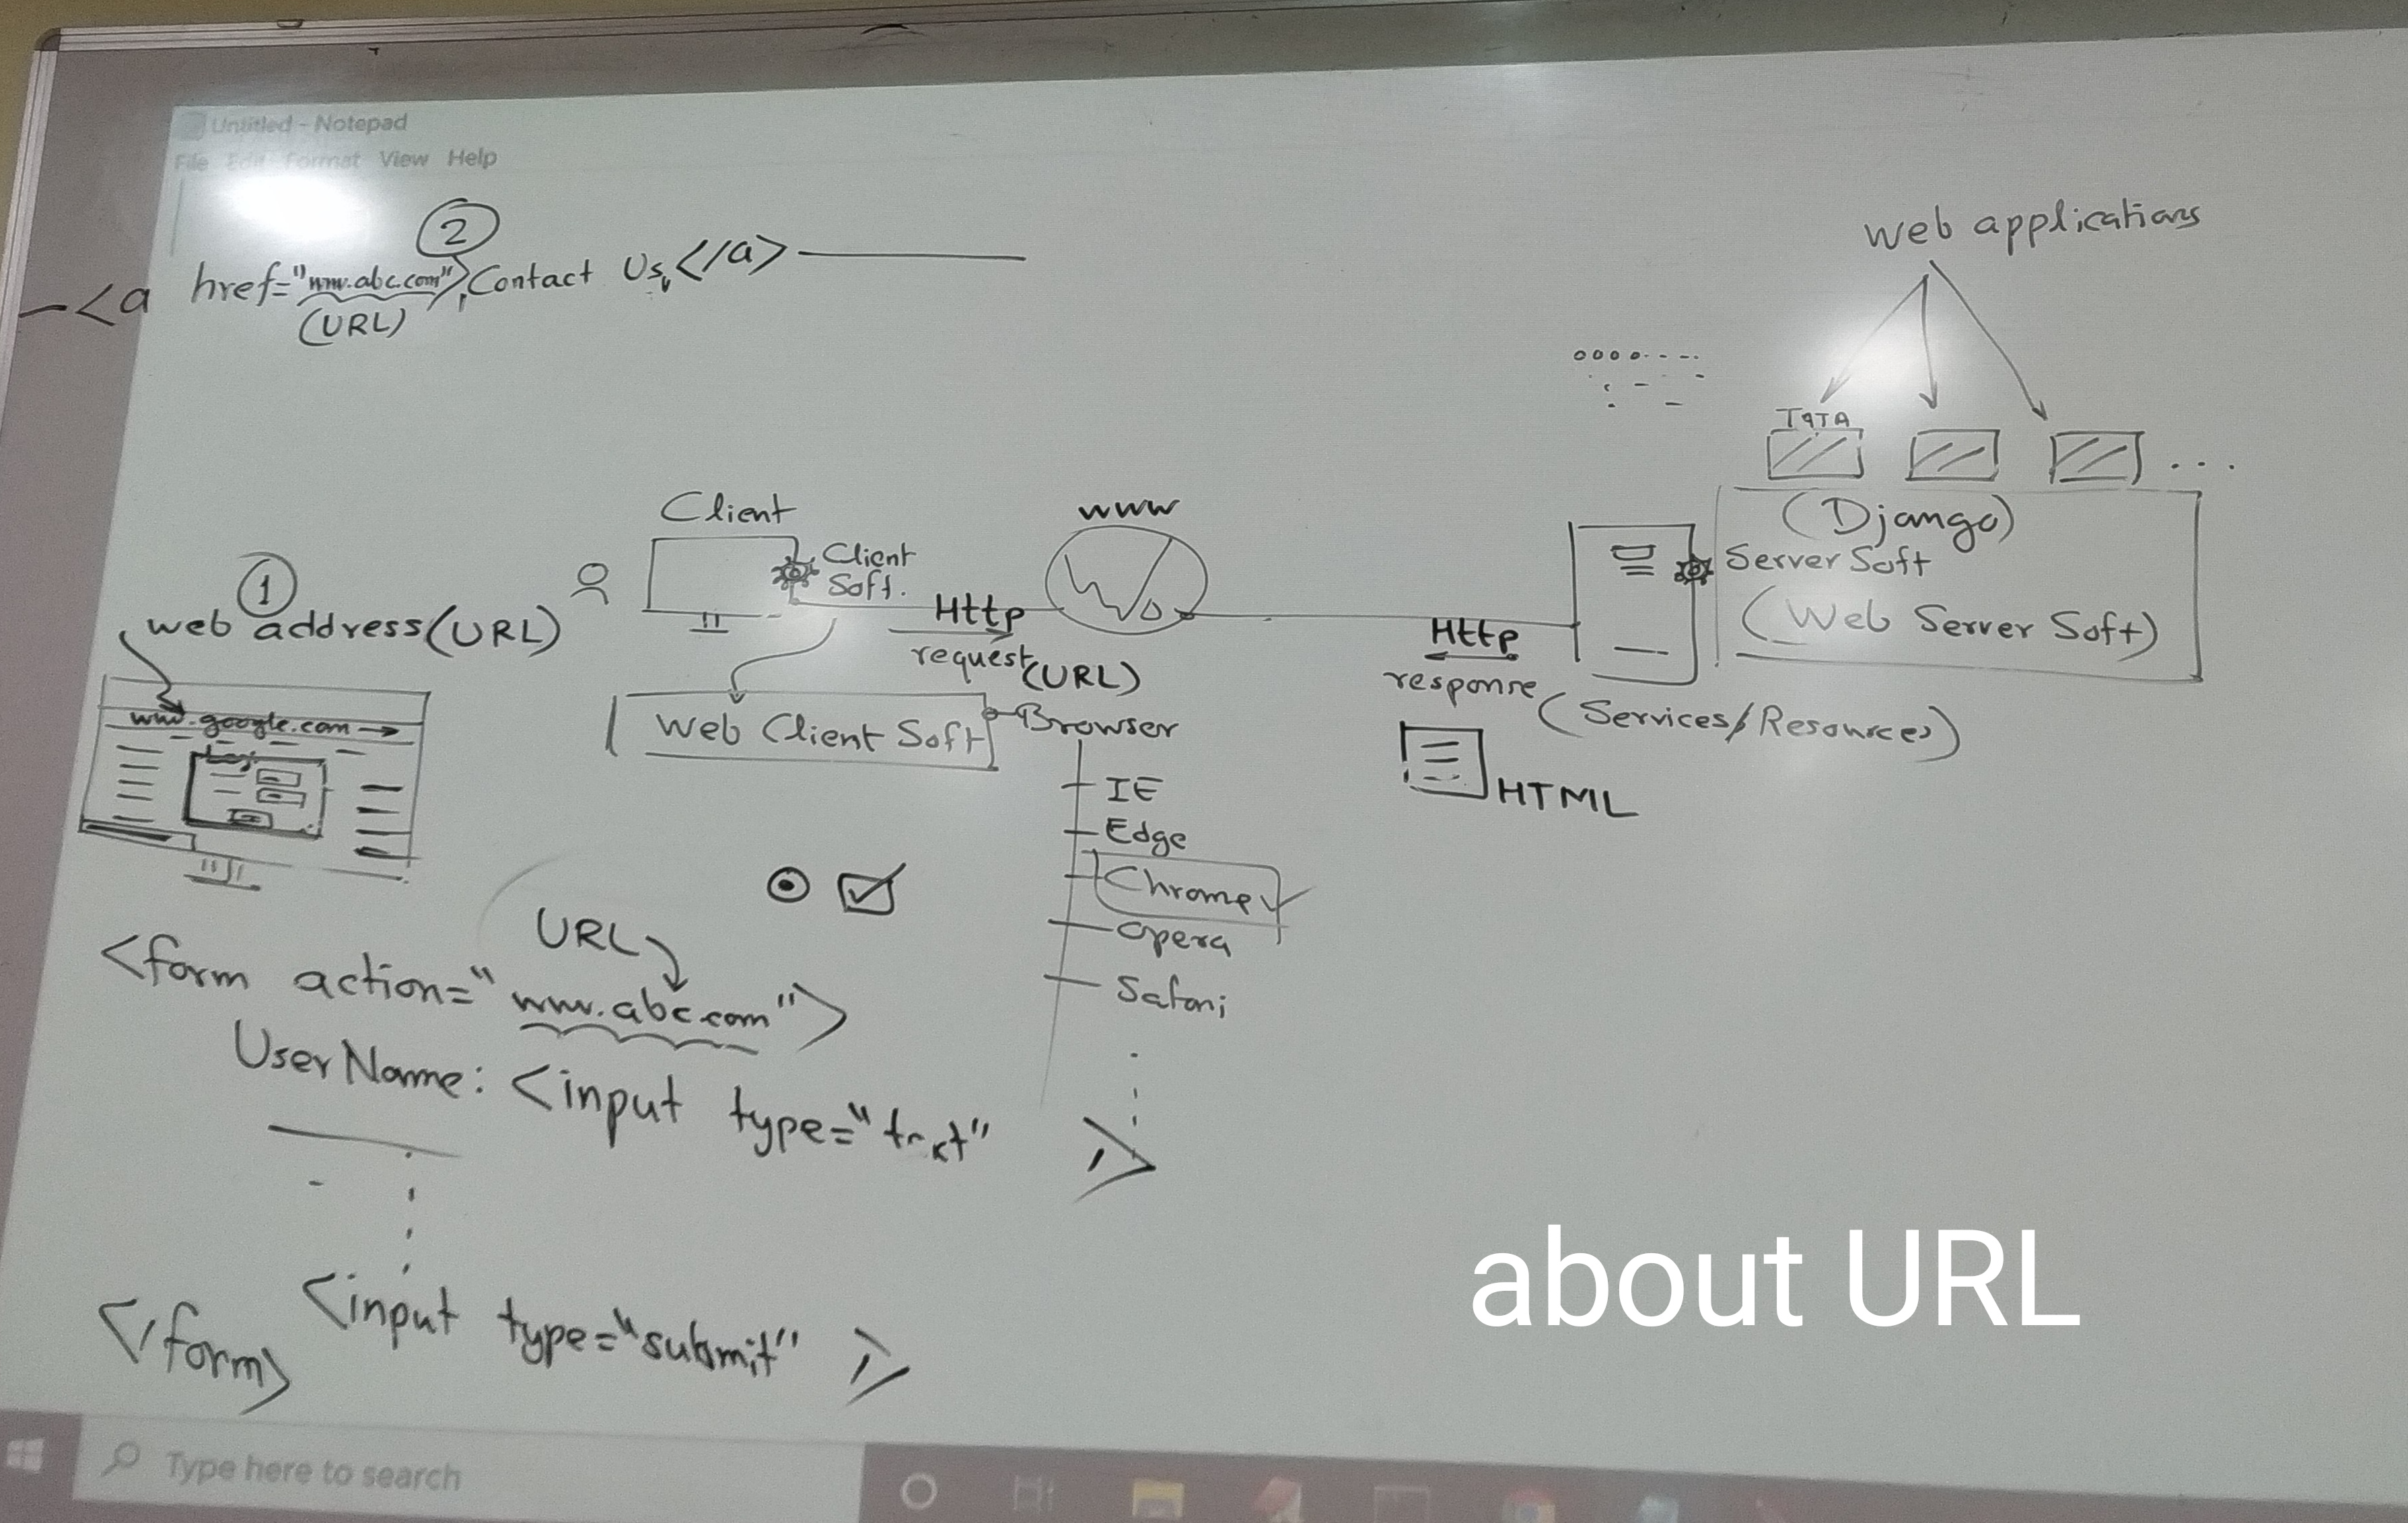 Untitled - Notepad
File Edit Format View Help
②
<a href="www.abc.com">Contact Us</a>
(URL)
web applications
TATA
(Django)
Server Soft
(Web Server Soft)
Client
Client
Soft.
www
①
web address(URL)
Http
request(URL)
Http
response
(Services/Resources)
HTML
www.google.com
Web Client Soft
Browser
IE
Edge
Chrome
Opera
Safari
URL
<form action="www.abc.com">
UserName: <input type="text" />
<input type="submit" />
</form>
about URL
Type here to search